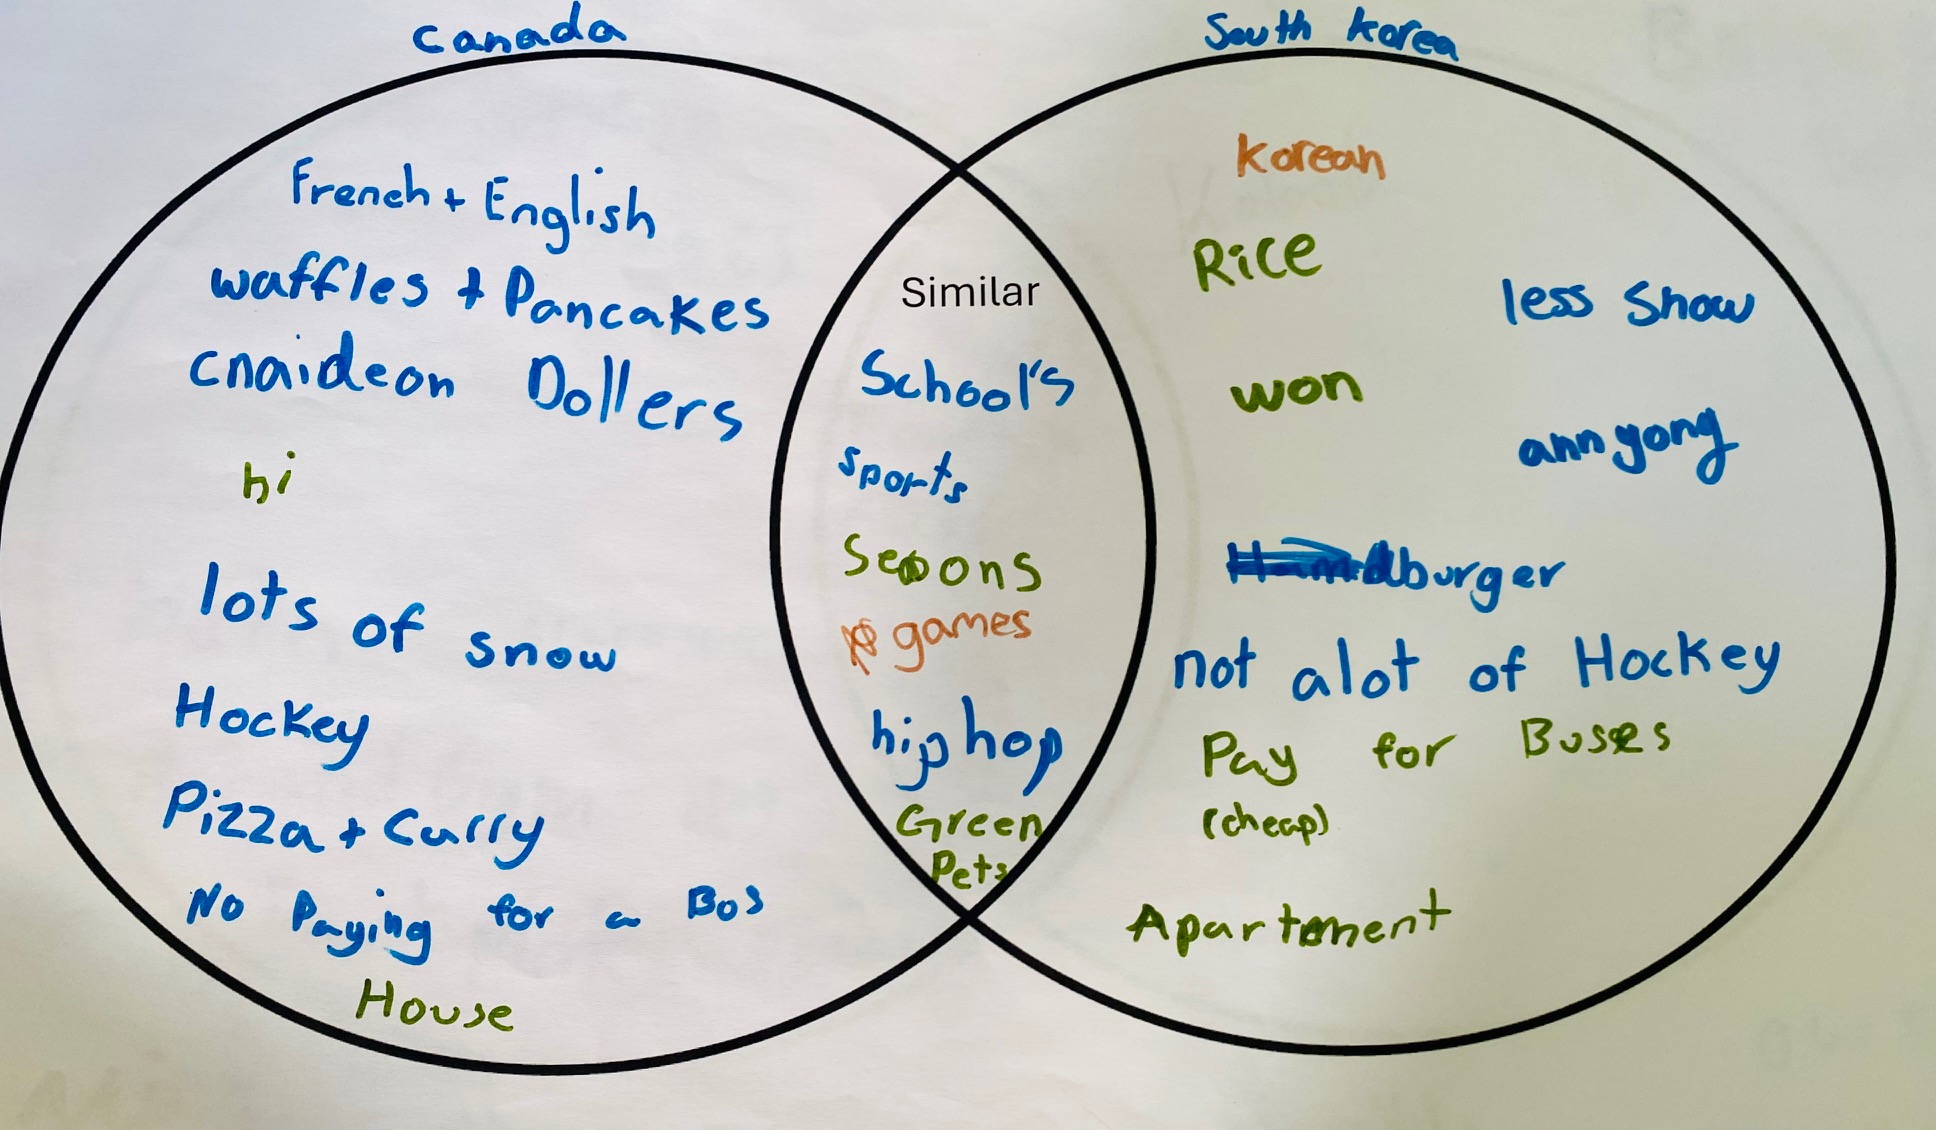 Canada
South Korea
French + English
waffles + Pancakes
cnaideon Dollers
hi
lots of snow
Hockey
Pizza + Curry
No Paying for a Bus
House
Similar
School's
sports
games
hip hop
Green
Pets
Korean
Rice
less snow
won
ann yong
burger
not alot of Hockey
Pay for Buses
(cheap)
Apartment